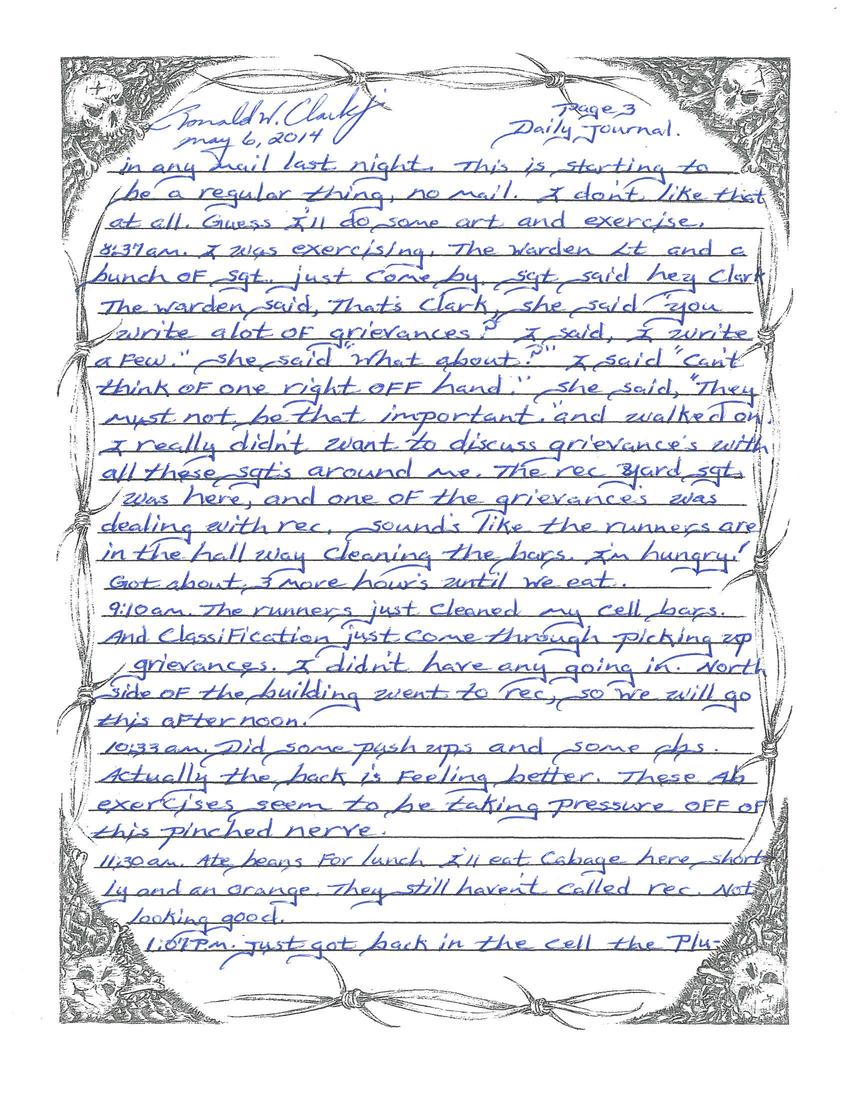 Ronald W. Clark jr
Page 3
May 6, 2014
Daily Journal.
in any mail last night. This is starting to
be a regular thing, no mail. I don't like that
at all. Guess I'll do some art and exercise.
8:37am. I was exercising. The Warden Lt and a
bunch of sgt. just come by. sgt said hey Clark
The warden said, That's Clark, she said "you
write alot of grievances?" I said, I write
a few." she said "What about?" I said "Can't
think of one right off hand." she said, "They
must not be that important." and walked on.
I really didn't want to discuss grievance's with
all these sgt's around me. The rec yard sgt.
was here, and one of the grievances was
dealing with rec. sound's like the runners are
in the hall way cleaning the bars. I'm hungry!
Got about 3 more hour's until we eat.
9:10am. The runners just cleaned my cell bars.
And Classification just come through picking up
grievances. I didn't have any going in. North
side of the building went to rec, so we will go
this after noon.
10:33am. Did some push ups and some abs.
Actually the back is feeling better. These Ab
exercises seem to be taking pressure off of
this pinched nerve.
11:30am. Ate beans for lunch I'll eat Cabage here short
ly and an orange. They still haven't called rec. Not
looking good.
1:07pm. just got back in the cell the Plu-